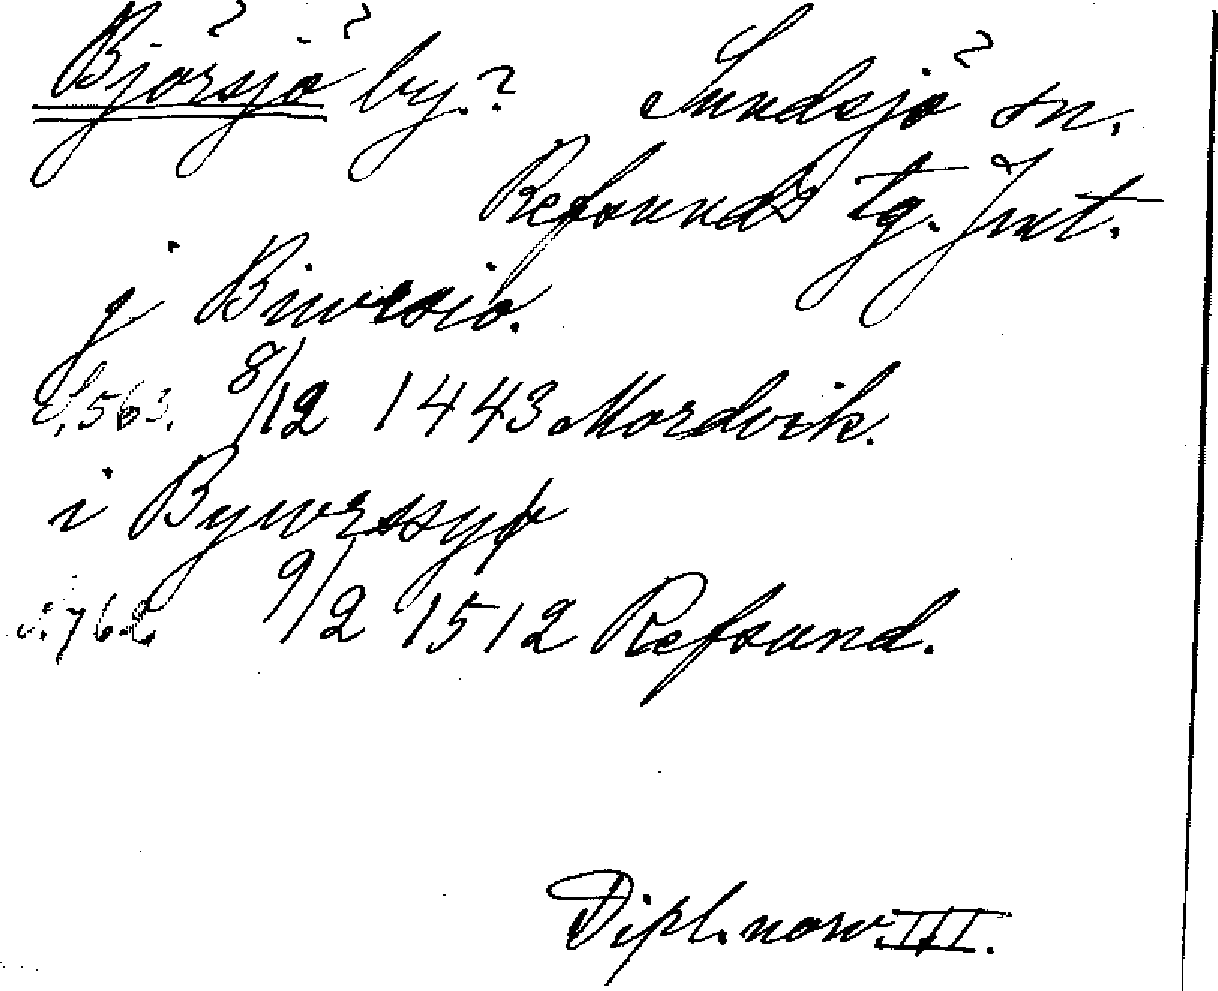 Björsjö by.? Sundsjö sn.
Refsunds tg. Jmt.
j Biwrsio.
S. 563. 8/12 1443 Mordvik.
i Bywrssyø
S. 762 9/2 1512 Refsund.
Dipl. norv. III.